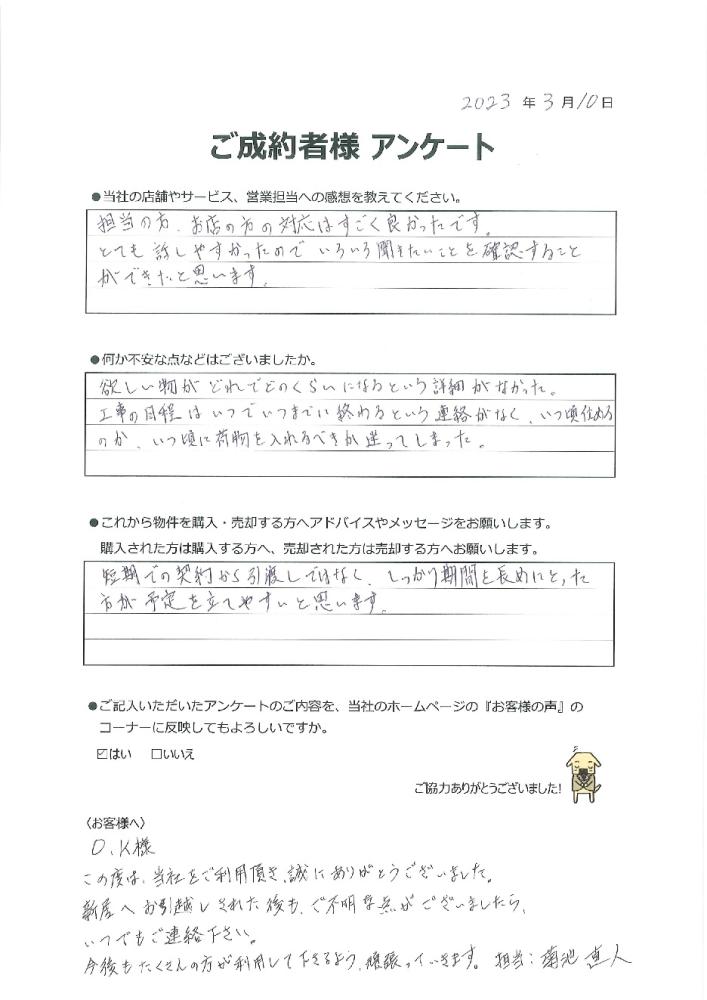 2023年3月10日
ご成約者様 アンケート
●当社の店舗やサービス、営業担当への感想を教えてください。
担当の方、お店の方の対応はすごく良かったです。
とても話しやすかったのでいろいろ聞きたいことを確認すること
ができたと思います。
●何か不安な点などはございましたか。
欲しい物がどれでどのくらいになるという詳細がなかった。
工事の日程はいつでいつまでに終わるという連絡がなく、いつ頃住める
のか、いつ頃に荷物を入れるべきか迷ってしまった。
●これから物件を購入・売却する方へアドバイスやメッセージをお願いします。
購入された方は購入する方へ、売却された方は売却する方へお願いします。
短期での契約から引渡しではなく、しっかり期間を長めにとった
方が予定を立てやすいと思います。
●ご記入いただいたアンケートのご内容を、当社のホームページの『お客様の声』の
コーナーに反映してもよろしいですか。
☑はい ☐いいえ
ご協力ありがとうございました!
〈お客様へ〉
O.K様
この度は、当社をご利用頂き、誠にありがとうございました。
新居へお引越しされた後も、ご不明な点がございましたら、
いつでもご連絡下さい。
今後もたくさんの方が利用して下さるよう、頑張っていきます。 担当:菊池 直人